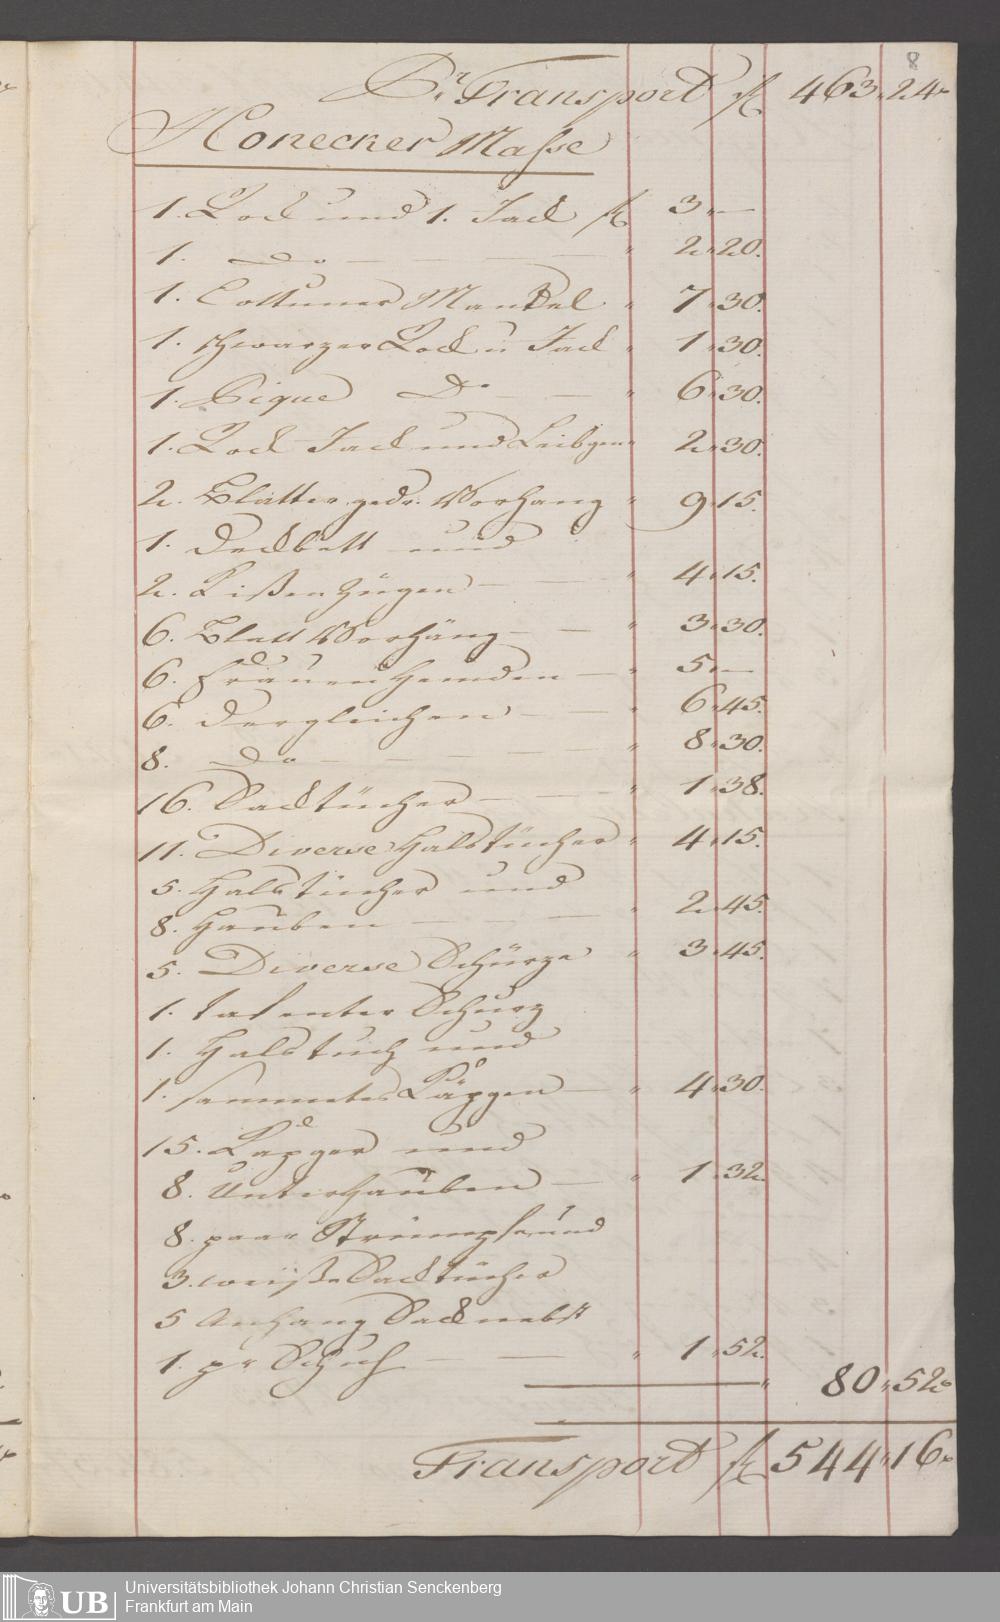 8
Pr Transport fl 463 " 24 "
Honecker Masse
1. Rock und 1. Jack fl 3 " —
1. Do — — — " 2 " 20.
1. Cottuner Mantel " 7 " 30.
1. schwarzer Rock u Jack " 1 " 30.
1. Pique Do — — " 6 " 30.
1. Rock Jack und Leibgen " 2 " 30.
2. Blätter gedr. Vorhang " 9 " 15.
1. Deckbett und
2. Kißen Zügen — — " 4 " 15.
6. Blatt Vorhäng — — " 3 " 30.
6. Frauen Hemden — " 5 " —
6. Dergleichen — — " 6 " 45.
8. Do — — — " 8 " 30.
16. Sacktücher — — " 1 " 38.
11. Diverse Halstücher " 4 " 15.
5. Halstücher und
8. Hauben — — — " 2 " 45.
5. Diverse Schürze " 3 " 45.
1. tafenter Schurz
1. Halstuch und
1. sammetes Käpgen — " 4 " 30.
15. Käpger und
8. Unterhauben — " 1 " 32.
8. paar Strümpfe, und
3. weiße Sacktücher
5 Anhang Säck nebst
1. pr Schuh — — " 1 " 52.
" 80 " 52 "
Transport fl 544 " 16 "
UB
Universitätsbibliothek Johann Christian Senckenberg
Frankfurt am Main